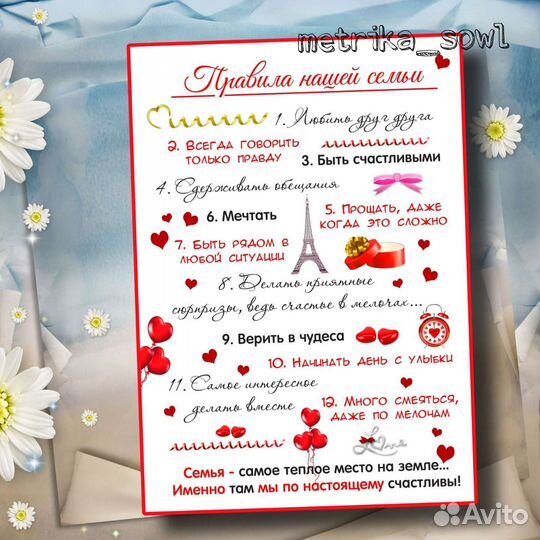 metrika_sowl
Правила нашей семьи
1. Любить друг друга
2. Всегда говорить
только правду
3. Быть счастливыми
4. Сдерживать обещания
5. Прощать, даже
когда это сложно
6. Мечтать
7. Быть рядом в
любой ситуации
8. Делать приятные
сюрпризы, ведь счастье в мелочах...
9. Верить в чудеса
10. Начинать день с улыбки
11. Самое интересное
делать вместе
12. Много смеяться,
даже по мелочам
Love
Семья - самое теплое место на земле...
Именно там мы по настоящему счастливы!
Avito